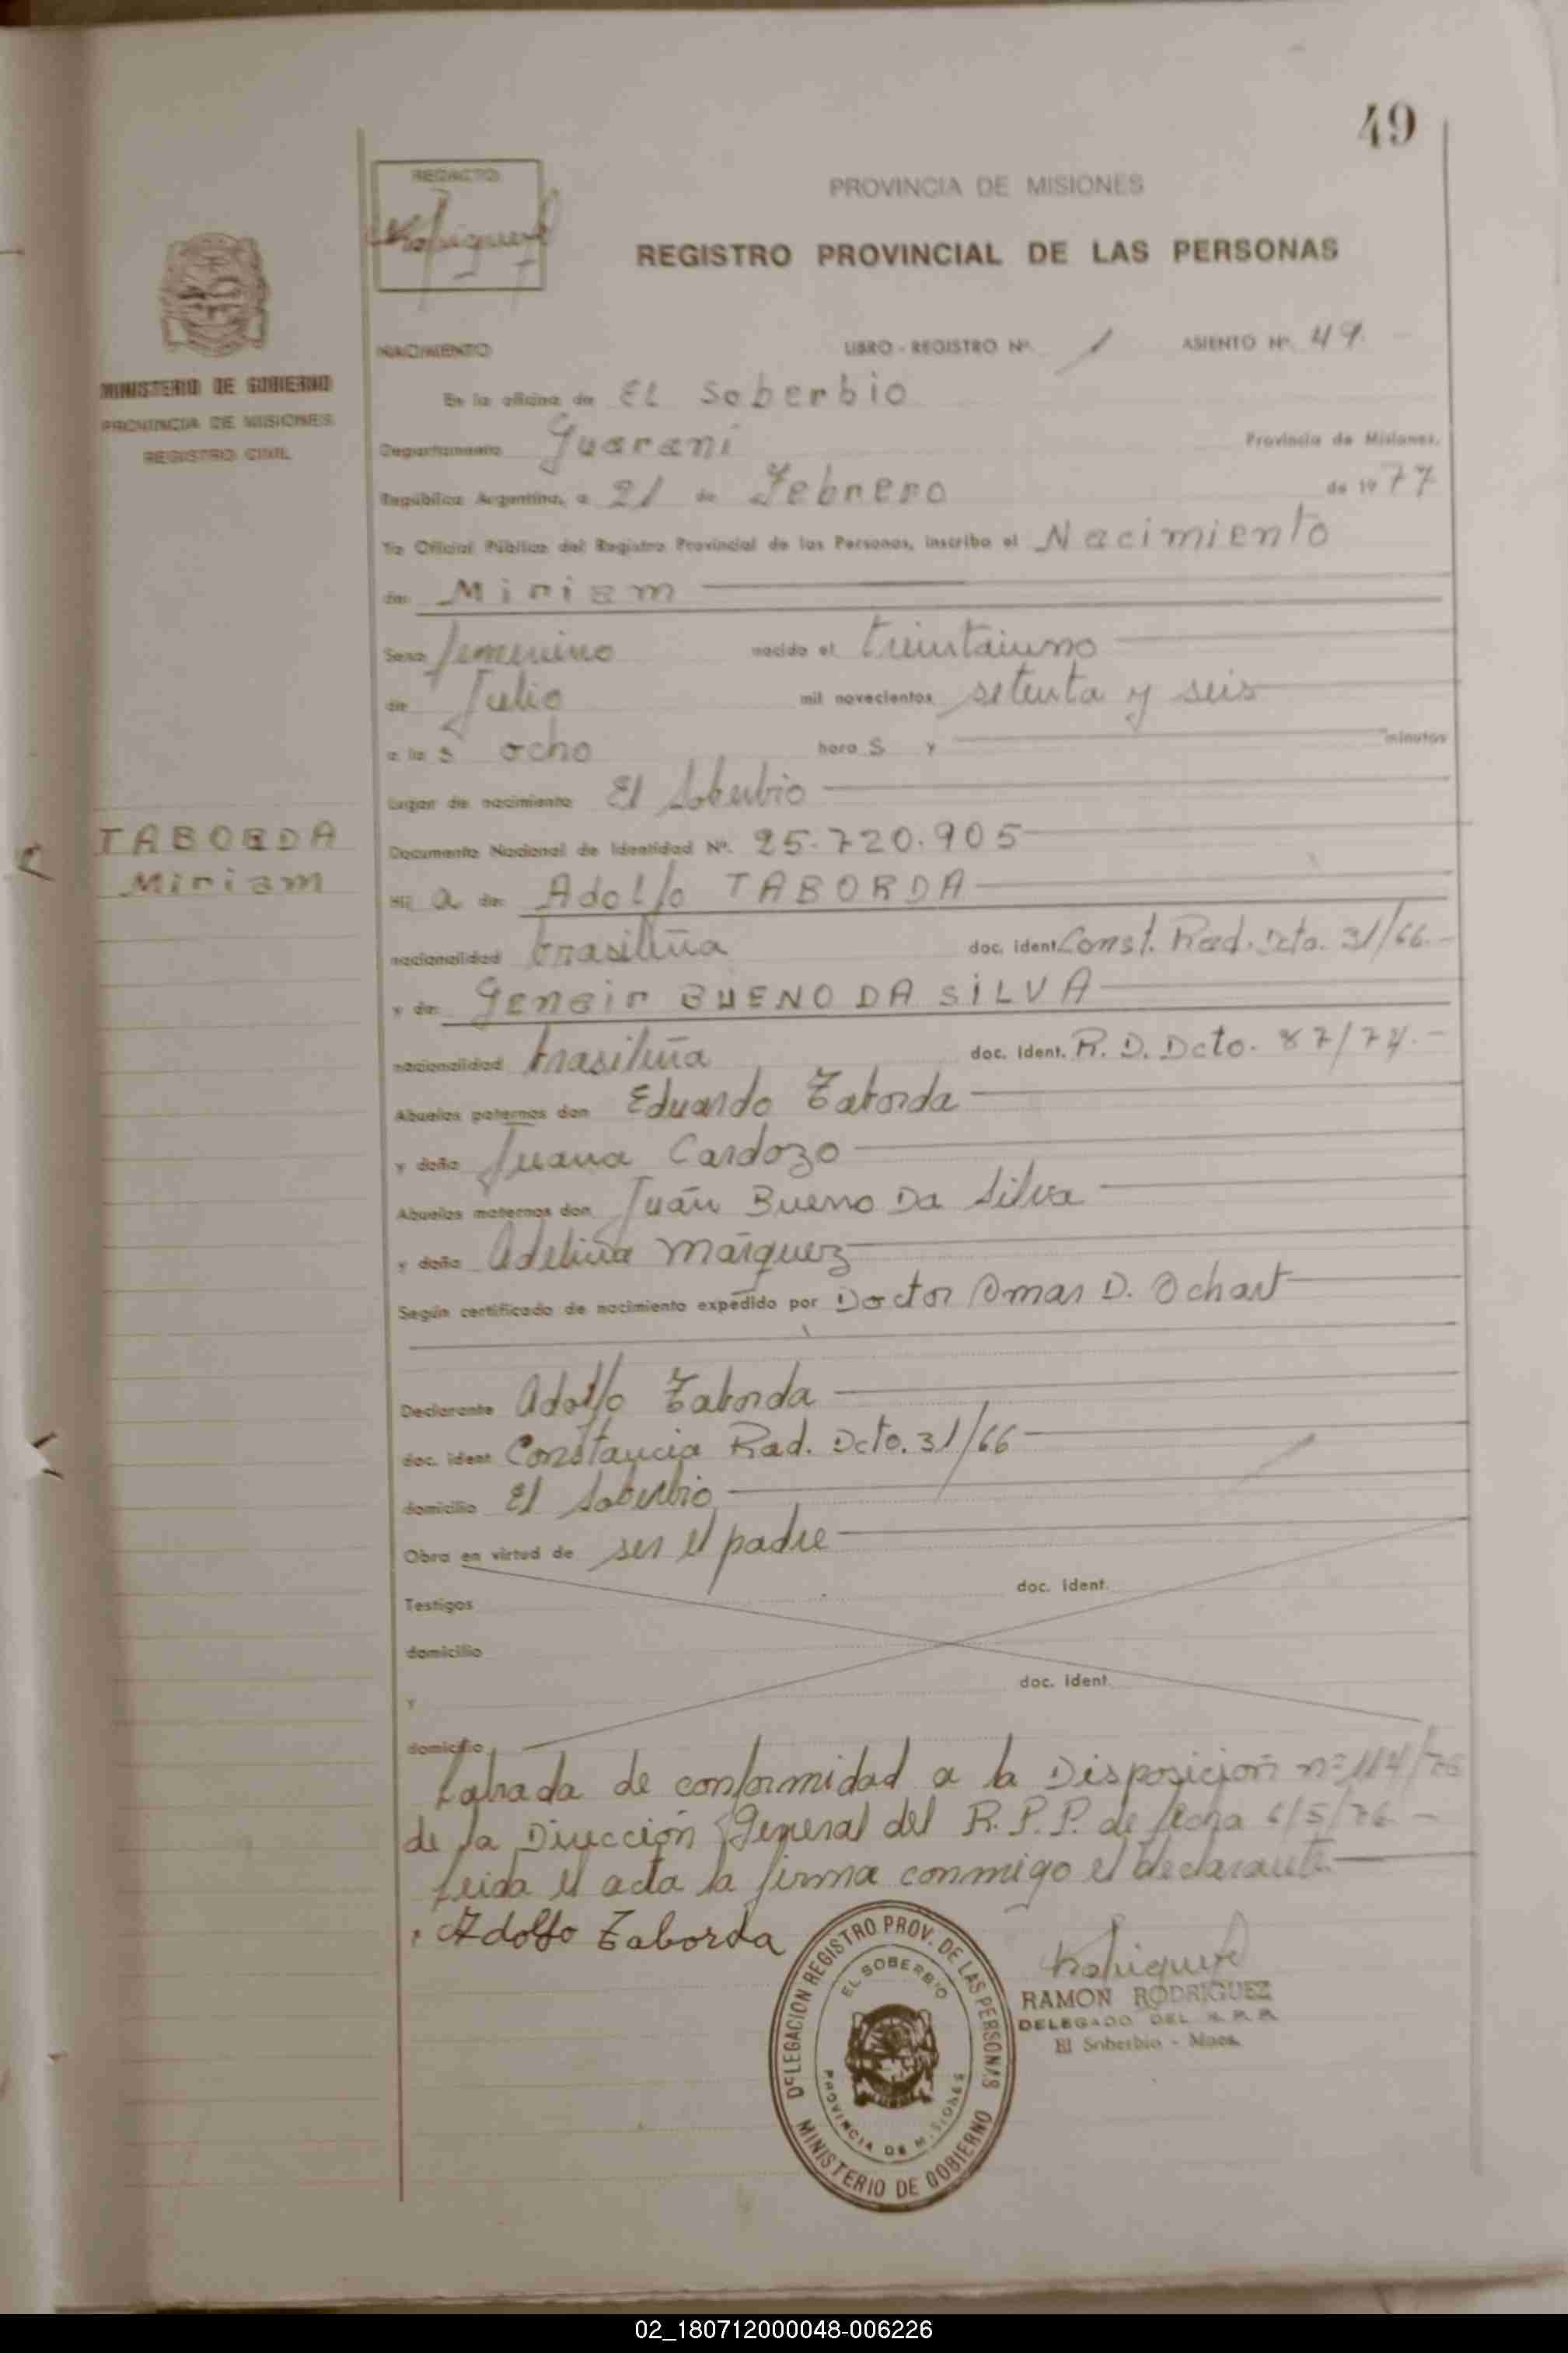 49
REDACTO
PROVINCIA DE MISIONES
REGISTRO PROVINCIAL DE LAS PERSONAS
MINISTERIO DE GOBIERNO
PROVINCIA DE MISIONES
REGISTRO CIVIL
NACIMIENTO LIBRO - REGISTRO Nº 1 ASIENTO Nº 49
En la oficina de El Soberbio
Departamento Guaraní Provincia de Misiones,
República Argentina, a 21 de Febrero de 1977
Yo Oficial Público del Registro Provincial de las Personas, inscribo el Nacimiento
de: Miriam
Sexo femenino nacido el treintaiuno
de Julio mil novecientos setenta y seis
a las ocho horas y minutos
Lugar de nacimiento El Soberbio
TABORDA
Miriam
Documento Nacional de Identidad Nº. 25.720.905
Hija de: Adolfo TABORDA
nacionalidad brasileña doc. ident. Const. Rad. Dcto. 31/66.-
y de: Genair BUENO DA SILVA
nacionalidad brasileña doc. ident. R. D. Dcto. 87/74.-
Abuelos paternos don Eduardo Taborda
y doña Juana Cardozo
Abuelos maternos don Juán Bueno Da Silva
y doña Adelina Márquez
Según certificado de nacimiento expedido por Doctor Omar D. Ochart
Declarante Adolfo Taborda
doc. ident Constancia Rad. Dcto. 31/66
domicilio El Soberbio
Obra en virtud de ser el padre
Testigos doc. ident.
domicilio
y doc. ident.
domicilio
Labrada de conformidad a la Disposición nº 114/76
de la Dirección General del R.P.P. de fecha 6/5/76 -
Leida el acta la firma conmigo el declarante.
Adolfo Taborda
DELEGACION REGISTRO PROV. DE LAS PERSONAS
EL SOBERBIO
PROVINCIA DE MISIONES
MINISTERIO DE GOBIERNO
RAMON RODRIGUEZ
DELEGADO DEL R. P. P.
El Soberbio - Mnes.
02_180712000048-006226